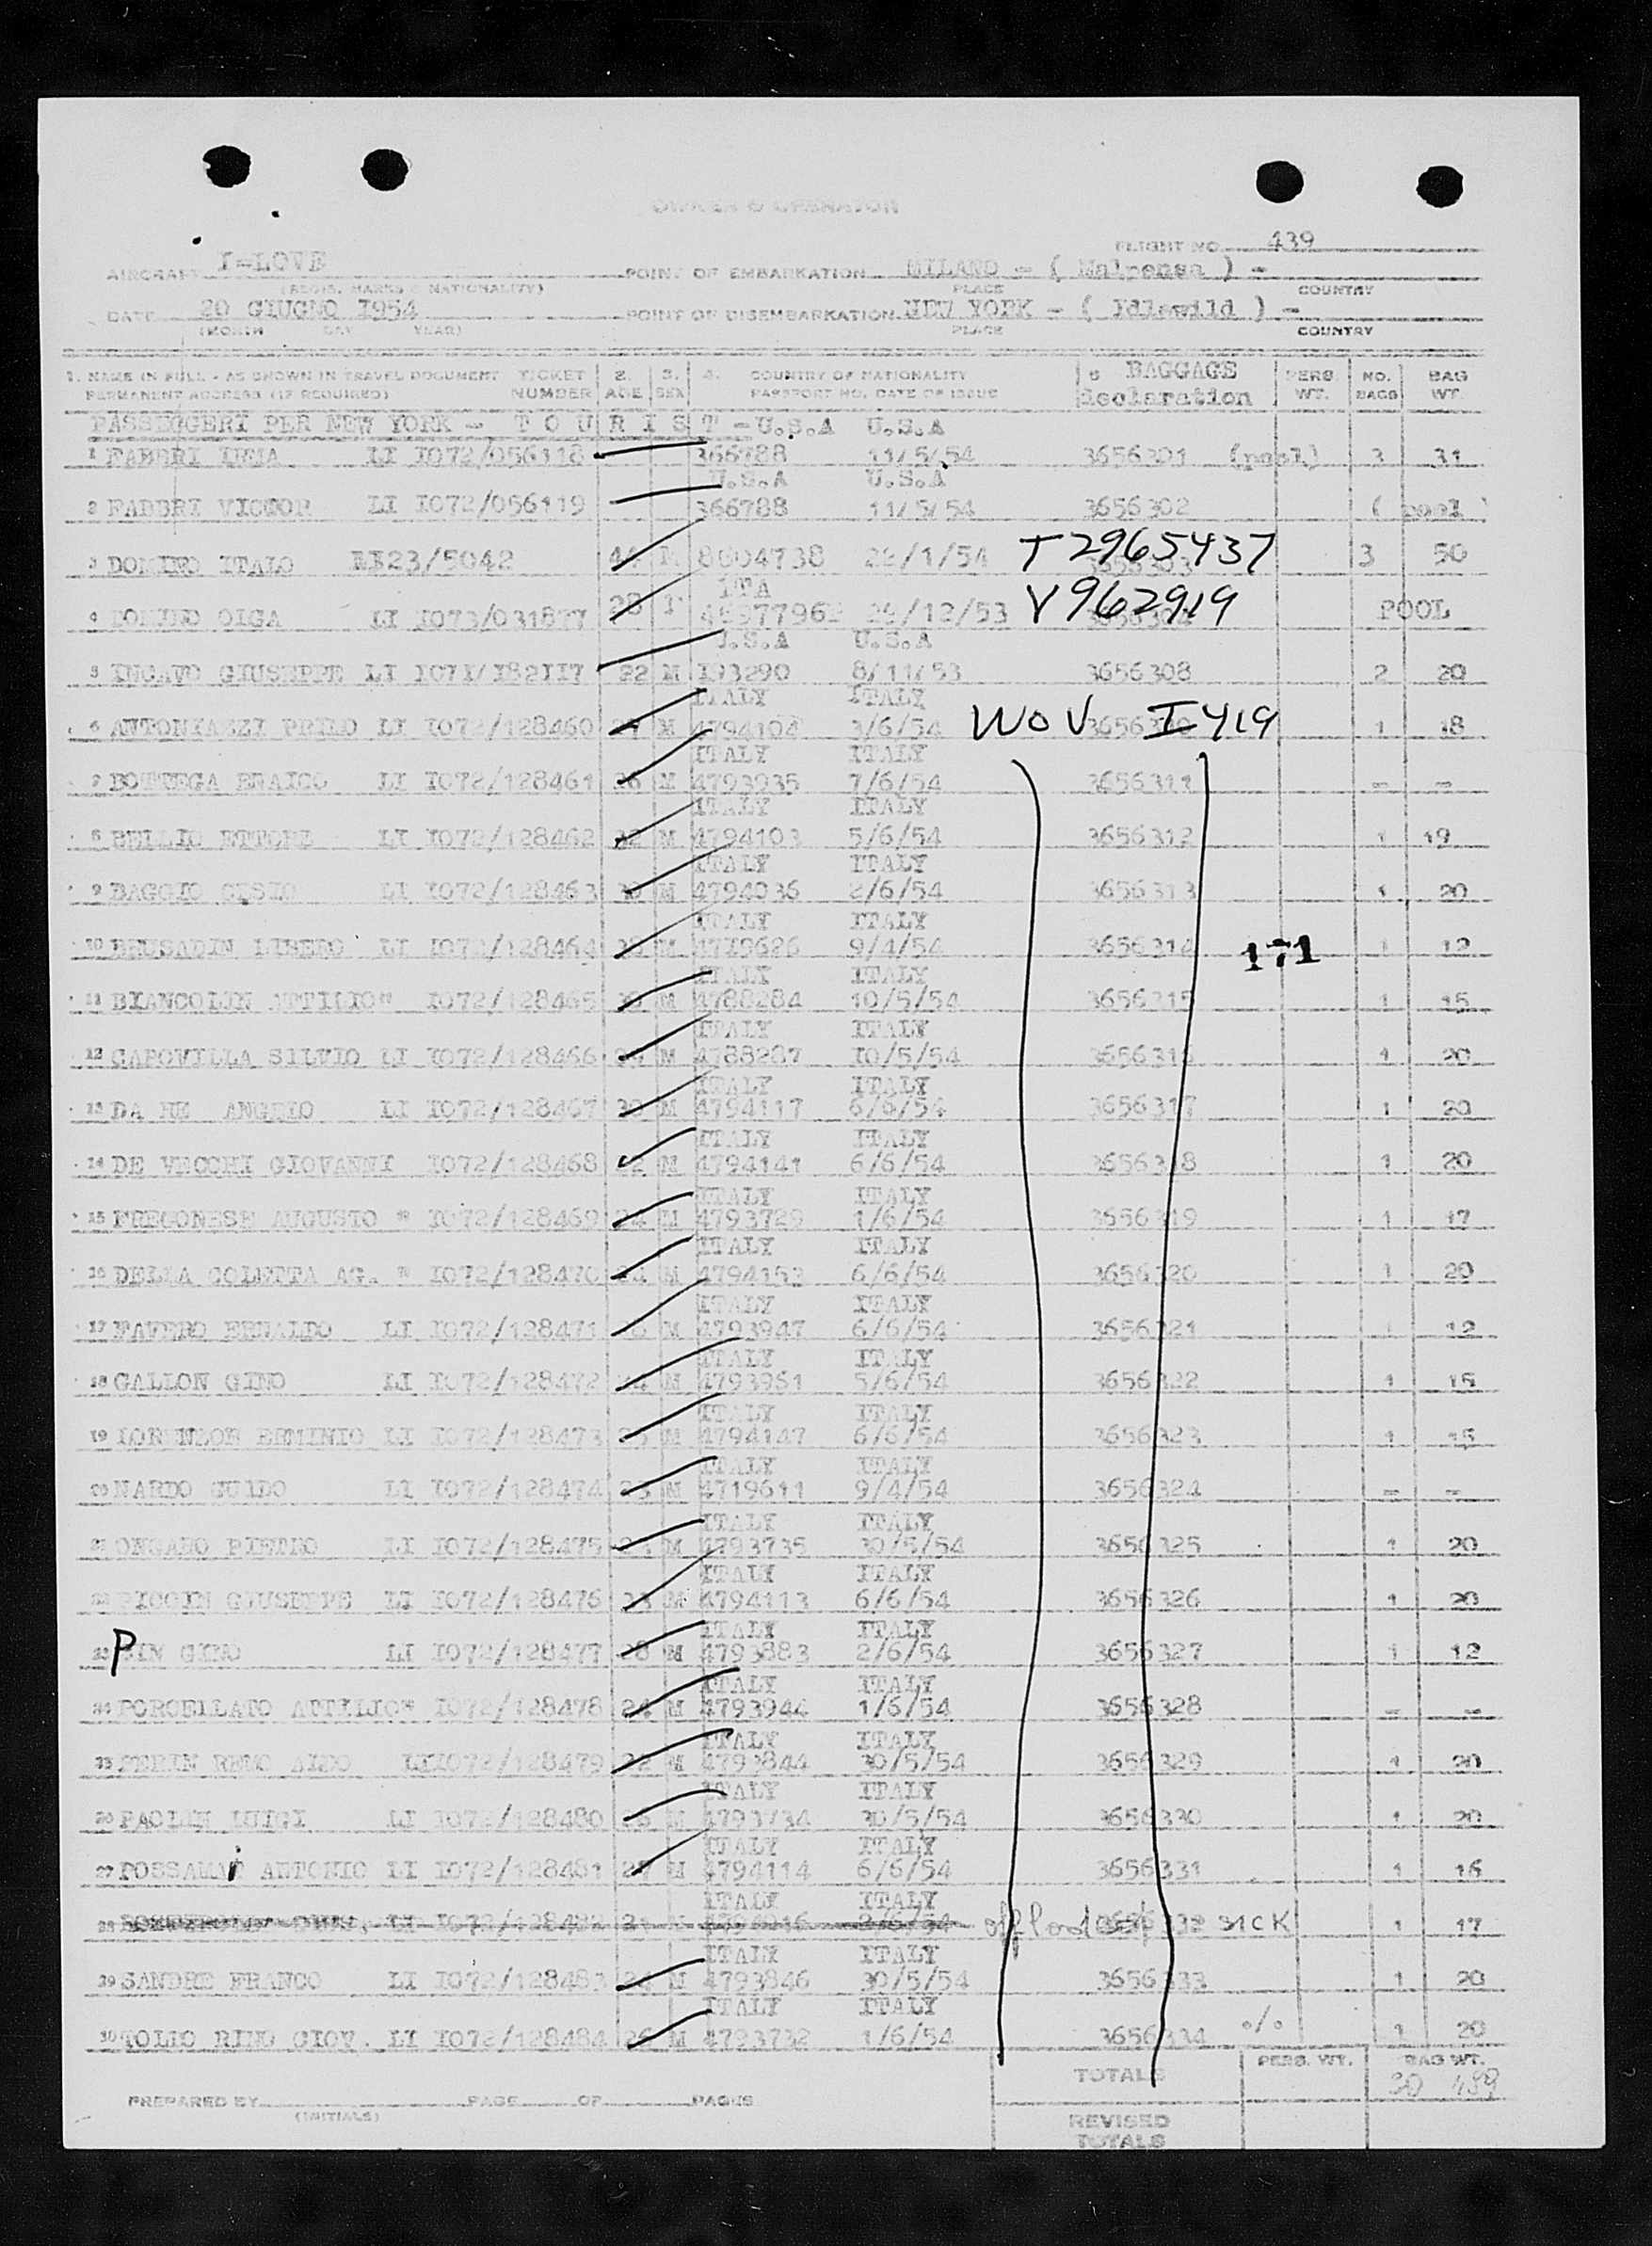 OWNER & OPERATOR
FLIGHT NO. 439
AIRCRAFT I-LOVE POINT OF EMBARKATION MILANO - ( Malpensa ) -
(REGIS. MARKS & NATIONALITY) PLACE COUNTRY
DATE 20 GIUGNO 1954 POINT OF DISEMBARKATION NEW YORK - ( Idlewild ) -
(MONTH DAY YEAR) PLACE COUNTRY
1. NAME IN FULL - AS SHOWN IN TRAVEL DOCUMENT TICKET 2. 3. 4. COUNTRY OF NATIONALITY 5 BAGGAGE PERS. NO. BAG
PERMANENT ADDRESS (IF REQUIRED) NUMBER AGE SEX PASSPORT NO. DATE OF ISSUE declaration WT. BAGS WT.
PASSEGGERI PER NEW YORK - T O U R I S T - U.S.A U.S.A
1 FABBRI LI I072/056118 366788 11/5/54 3656301 (pool) 3 31
U.S.A U.S.A
2 FABBRI VICTOR LI I072/056119 366788 11/5/54 3656302 ( pool )
3 DOMINO ITALO 23/5042 M 8004738 /1/54 T2965437 3 50
ITA
4 DOMINO OLGA LI I073/031877 28 F /12/53 V962919 POOL
U.S.A U.S.A
5 INGAVO GIUSEPPE LI I071/182117 22 M 193290 8/11/53 3656308 2 20
ITALY ITALY
6 ANTONIAZZI PRIMO LI I072/128460 M 4794104 3/6/54 WOV I419 1 18
ITALY ITALY
7 BOTTEGA ERAICO LI I072/128461 26 M 4793935 7/6/54 3656311 - -
ITALY ITALY
8 BELLIO ETTORE LI I072/128462 M 4794103 5/6/54 3656312 1 19
ITALY ITALY
9 BAGGIO LI I072/128463 M 4794036 2/6/54 3656313 1 20
ITALY ITALY
10 BRUSADIN LIBERO LI I072/128464 M 4719626 9/4/54 3656314 171 1 12
ITALY ITALY
11 BIANCOLIN ATTILIO" I072/128465 M 4788284 10/5/54 3656315 1 15
ITALY ITALY
12 CAPOVILLA SILVIO LI I072/128466 M 4788287 10/5/54 3656316 1 20
ITALY ITALY
13 DA RE ANGELO LI I072/128467 30 M 4794117 6/6/54 3656317 1 20
ITALY ITALY
14 DE VECCHI GIOVANNI I072/128468 22 M 4794141 6/6/54 3656318 1 20
ITALY ITALY
15 FREGONESE AUGUSTO " I072/128469 24 M 4793729 1/6/54 3656319 1 17
ITALY ITALY
16 DELLA COLETTA AG. " I072/128470 M 4794153 6/6/54 3656320 1 20
ITALY ITALY
17 FAVERO ERNALDO LI I072/128471 M 4793947 6/6/54 3656321 1 12
ITALY ITALY
18 GALLON GINO LI I072/128472 24 M 4793961 5/6/54 3656322 1 15
ITALY ITALY
19 LORENZON ERMINIO LI I072/128473 M 4794147 6/6/54 3656323 1 15
ITALY ITALY
20 NARDO GUIDO LI I072/128474 23 M 4719611 9/4/54 3656324 - -
ITALY ITALY
21 ONGARO PIETRO LI I072/128475 M 4793735 30/5/54 3656325 1 20
ITALY ITALY
22 PICCIN GIUSEPPE LI I072/128476 23 M 4794113 6/6/54 3656326 1 20
ITALY ITALY
23 PIN GINO LI I072/128477 28 M 4793883 2/6/54 3656327 1 12
ITALY ITALY
24 PORCELLATO ATTILIO" I072/128478 24 M 4793944 1/6/54 3656328 - -
ITALY ITALY
25 PERIN RENO LI I072/128479 22 M 4793844 30/5/54 3656329 1 20
ITALY ITALY
26 PAOLIN LUIGI LI I072/128480 M 4793734 30/5/54 3656330 1 20
ITALY ITALY
27 POSSAMAi ANTONIO LI I072/128481 M 4794114 6/6/54 3656331 1 16
ITALY ITALY
28 LI I072/128482 offload 3656332 SICK 1 17
ITALY ITALY
29 SANDRE FRANCO LI I072/128483 24 M 4793846 30/5/54 3656333 1 20
ITALY ITALY
30 TOLIO RINO GIOV. LI I072/128484 26 M 4793732 1/6/54 3656334 o/o 1 20
TOTALS PERS. WT. BAG WT.
30 489
PREPARED BY PAGE OF PAGES
(INITIALS)
REVISED
TOTALS